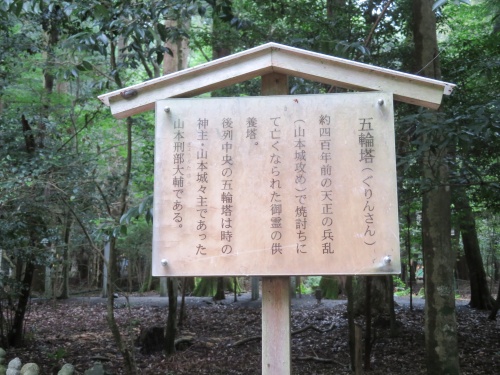 五輪塔(くりんさん)
約四百年前の天正の兵乱
(山本城攻め)で焼討ちに
て亡くなられた御霊の供
養塔。
後列中央の五輪塔は時の
神主・山本城々主であった
山本刑部大輔である。